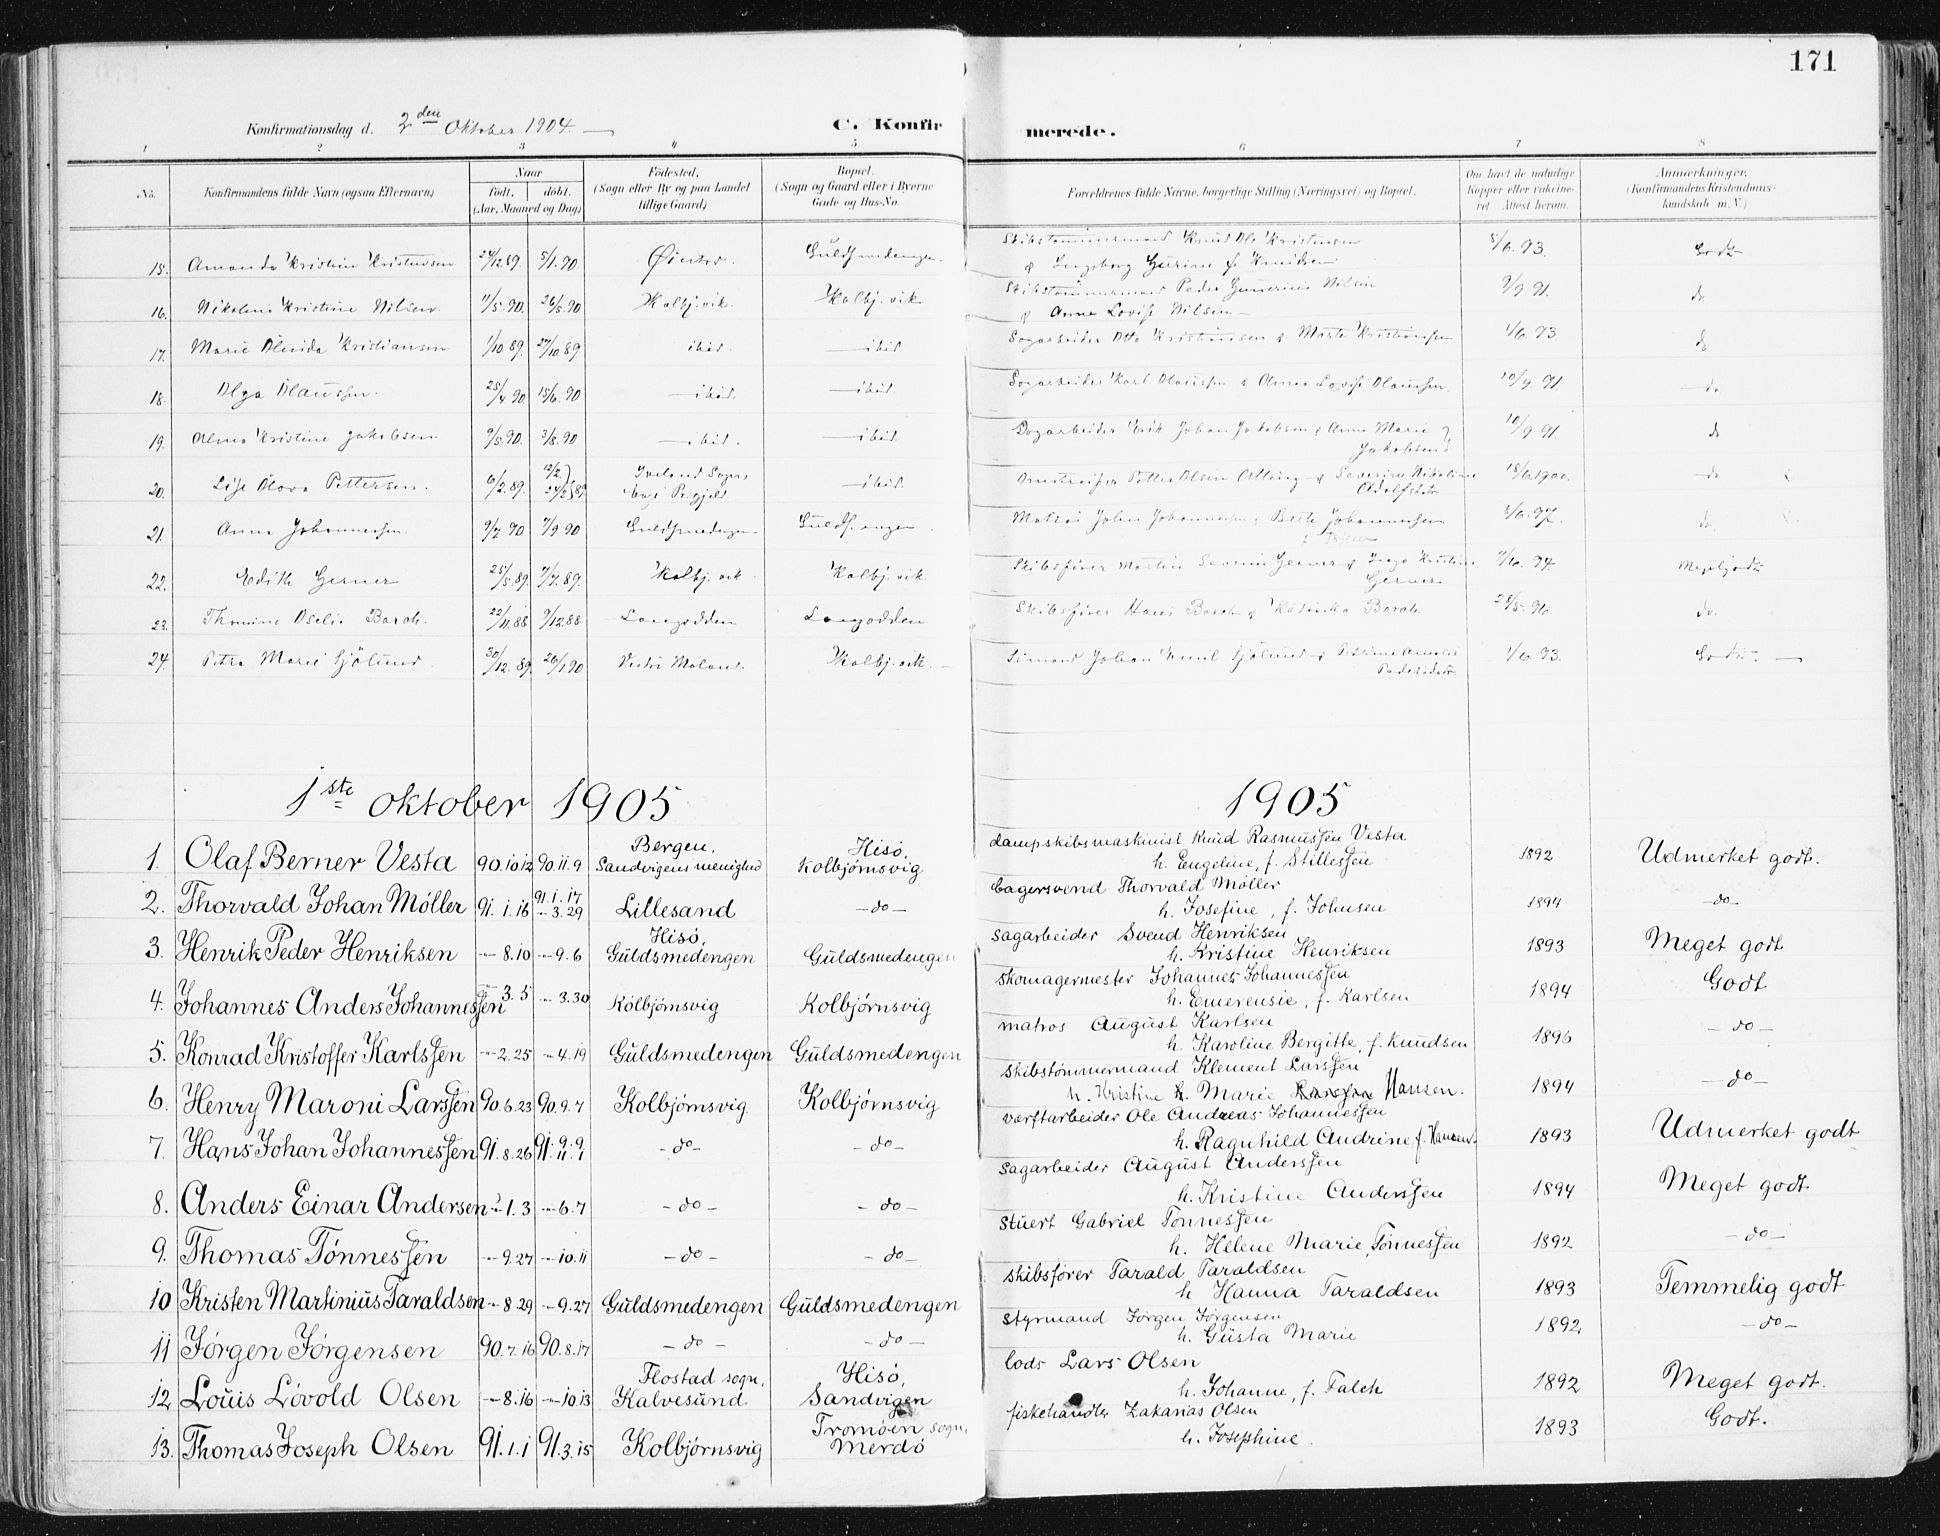 171
Konfirmationsdag d. 2den Oktober 1904.
C. Konfirmerede.
1 2 3 4 5 6 7 8
No. Konfirmandens fulde Navn (ogsaa Efternavn) Naar født, døbt. (Aar, Maaned og Dag) Fødested. (Sogn eller By og paa Landet tillige Gaard) Bopæl. (Sogn og Gaard eller i Byerne Gade og Hus-No. Forældrenes fulde Navne, borgerlige Stilling (Næringsvei) og Bopæl. Om havt de naturlige Kopper eller vakcineret. Attest herom. Anmærkninger. (Konfirmandens Kristendomskundskab m. V.)
15. Amanda Kristine Kristensen 24/12 89. 5/1. 90 Øiestad. Guldsmedengen. Skibstømmermand Knud Ole Kristensen 8/6. 93. Godt
& Ingeborg Gurine f. Knudsen
16. Nikoline Kristine Nilsen 11/5. 90. 26/5. 90 Kolbj.vik. Kolbj.vik Skibstømmermand Peder Nilsen 9/9 91. do
& Anne Lovise Nilsen
17. Marie Kristiansen 1/10. 89. 27/10. 89 ibid. ibid Sagarbeider Otto Kristiansen & Marte Kristiansen 1/6. 93. do
18. Olga Olaussen. 25/4 90. 15/6. 90 ibid. ibid. Sagarbeider Karl Olaussen & Anna Lovise Olaussen. 10/9. 91. do
19. Alma Kristine Jakobsen 9/5. 90. 3/8. 90 ibid. ibid. Sagarbeider Erik Johan Jakobsen & Anne Marie Jakobsen 10/9 91. do
20. Lise Olava Pettersen. 6/2. 89. 12/2 24/2 89 Iveland Sogn, Evje Pr.gjeld. ibid. Petter Olsen & Severine Nikoline Adolfsdtr 18/6 1900. do
21. Anna Johannessen. 9/7 90 7/9 90 Guldsmedengen Guldsm.engen Matros Johan Johannessen & Berte Johannessen 8/6. 97. do.
22. Edith Gerner 25/5. 89. 7/7. 89. Kolbj.vik Kolbj.vik. Skibsfører Martin Severin Gerner & Inga Kristine Gerner 7/6. 94. Megetgodt
23. Thomine Oselie Barch. 22/11. 88 9/12. 88 Langodden Langodden Skibsfører Hans Barch & Katinka Barch 28/5. 96. do.
24. Petra Marie Sjölund. 30/12. 89. 26/1. 90 Vestre Moland. Kolbj.vik. Sømand Johan Emil Sjölund & Petrine Amalie Pedersdtr 1/6. 93. Godt.
1ste oktober 1905 1905
1. Olaf Berner Vesta 90.10.12 90.11.9 Bergen, Sandvigens menighed Hisö, Kolbjørnsvig dampskibsmaskinist Knud Rasmussen Vesta 1892 Udmerket godt.
h. Engeline, f. Stillessen
2. Thorvald Johan Möller 91.1.16 91.1.17 -"-3.29 Lillesand -do- bagersvend Thorvald Möller 1894 -do-
h. Josefine, f. Johnsen
3. Henrik Peder Henriksen -"-8.10 -"-9.6 Hisö, Guldsmedengen Guldsmedengen sagarbeider Svend Henriksen 1893 Meget godt
h. Kristine Henriksen
4. Johannes Anders Johannessen -"-3.5 -"-3.30 Kolbjørnsvig Kolbjørnsvig skomagermester Johannes Johannessen 1894 Godt
h. Emerensie, f. Karlsen
5. Konrad Kristoffer Karlssen -"-2.25 -"-4.19 Guldsmedengen Guldsmedengen matros August Karlsen 1896 -do-
h. Karoline Bergitte, f. Knudsen
6. Henry Maroni Larssen 90.6.23 90.9.7 Kolbjørnsvig Kolbjørnsvig skibstømmermand Klement Larssen 1894 -do-
h. Kristine h. Marie Larssen Hansen.
7. Hans Johan Johannessen 91.8.26 91.9.9 11.1 -do- -do- værftarbeider Ole Andreas Johannessen 1893 Udmerket godt
h. Ragnhild Andrine f. Hansen.
8. Anders Einar Andersen -"-1.3 -"-6.7 -do- -do- sagarbeider August Anderssen 1894 Meget godt
h. Kristine Anderssen
9. Thomas Tönnessen -"-9.27 -"-10.11 -do- -do- Stuert Gabriel Tönnessen 1892 -do-
h. Helene Marie, Tönnessen
10 Kristen Martinius Taraldsen -"-8.29 -"-9.27 Guldsmedengen Guldsmedengen skibsfører Tarald Taraldsen 1893 Temmelig godt
h Hanna Taraldsen
11 Jørgen Jørgensen 90.7.16 90.8.17 -do- -do- styrmand Jørgen Jørgensen 1892 -do-
h. Gusta Marie
12 Louis Lövold Olsen -"-8.16 -"-10.13 Flostad sogn, Kalvesund Hisö, Sandvigen lods Lars Olsen 1892 Meget godt.
h. Johanne, f. Falch
13. Thomas Joseph Olsen 91.1.1 91.3.15 Kolbjørnsvig Tromöen sogn, Merdö fiskehandler Zakarias Olsen 1893 Godt.
h. Josephine